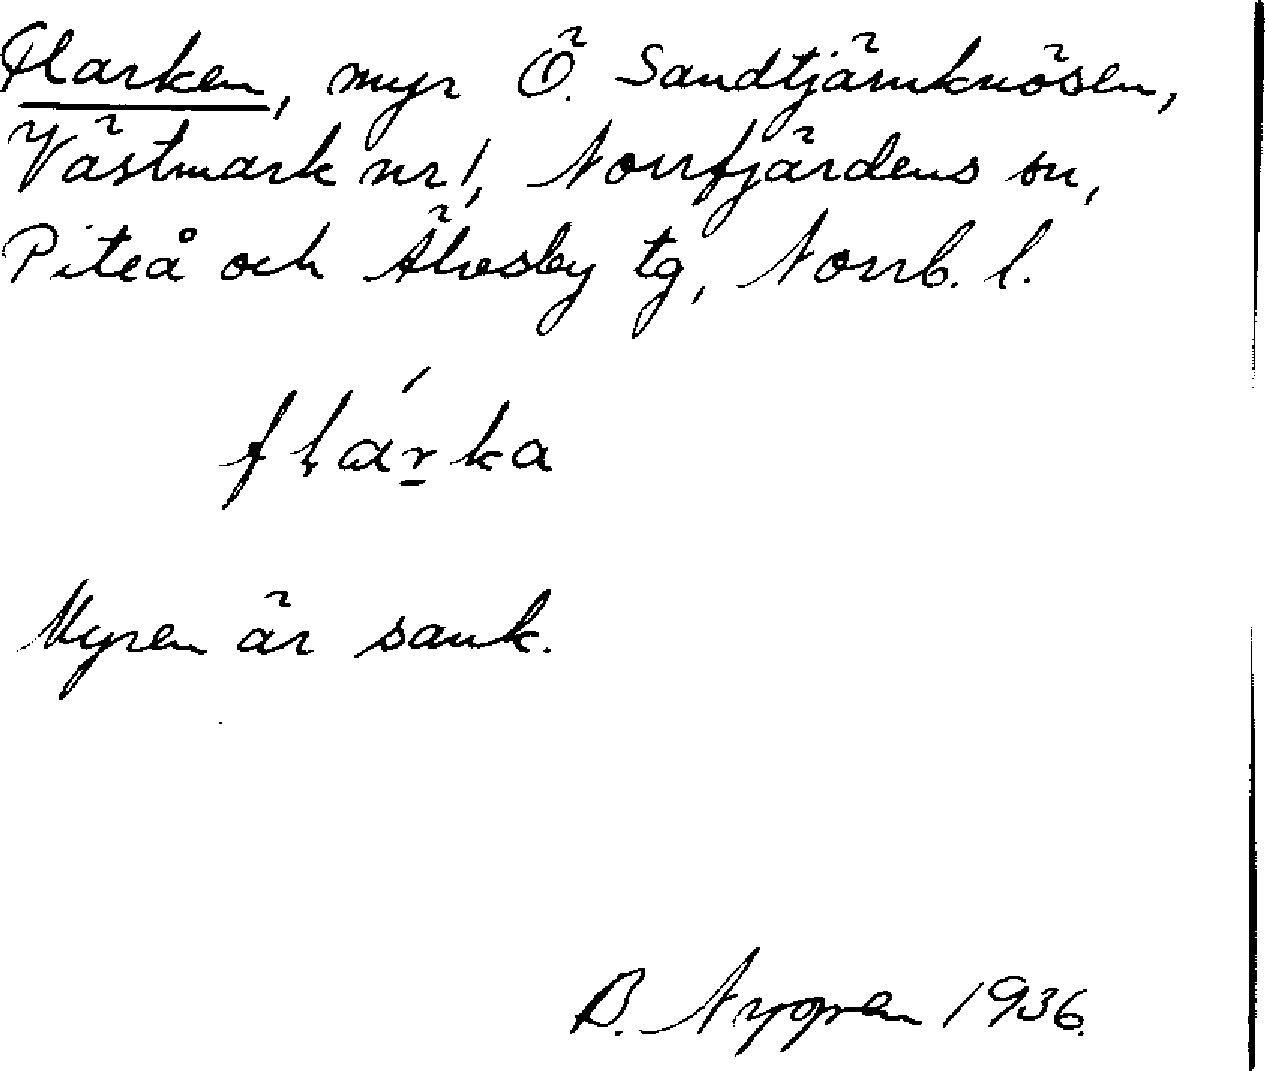 Flarken, myr Ö. Sandtjärnknösen,
Västmark nr 1, Norrfjärdens sn,
Piteå och Älvsby tg, Norrb. l.
flárka
Myren är sank.
B. Nygren 1936.